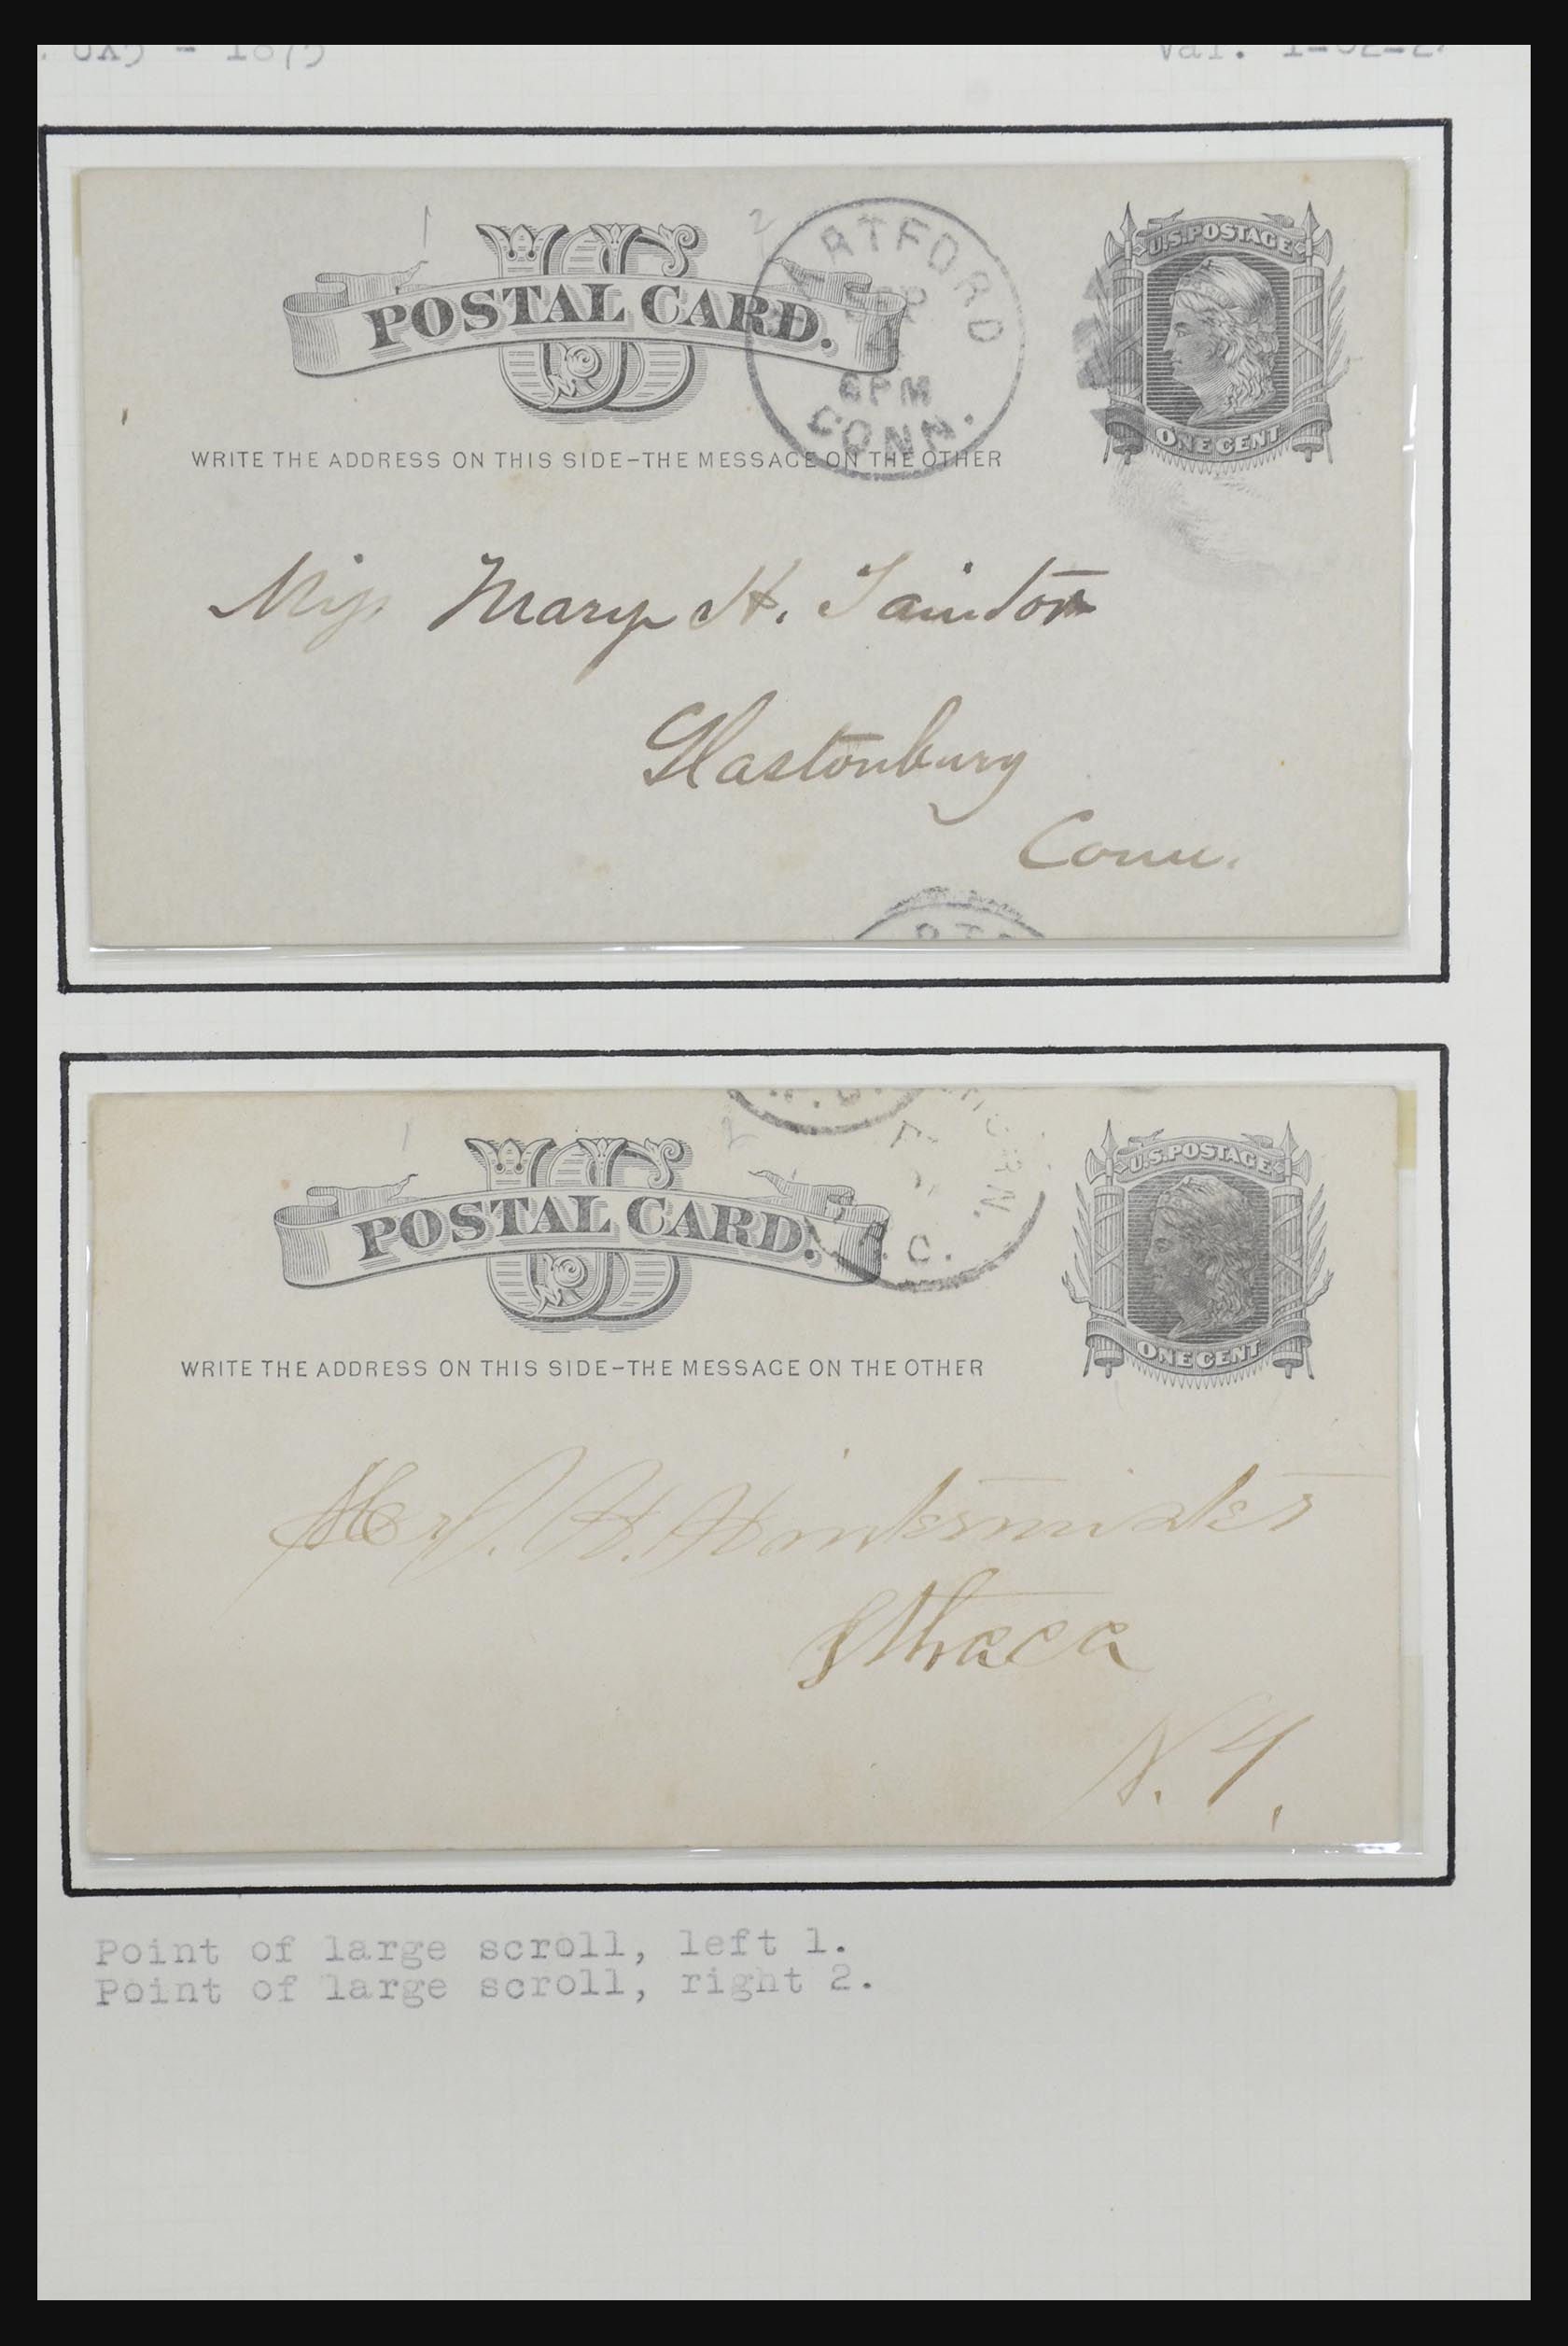 UX5 - 1875
Val.
1
2
US
POSTAL CARD.
U.S. POSTAGE
ONE CENT
HARTFORD
6PM
CONN.
WRITE THE ADDRESS ON THIS SIDE–THE MESSAGE ON THE OTHER
Miss Mary H. Taintor
Glastonbury
Conn.
1
2
US
POSTAL CARD.
U.S. POSTAGE
ONE CENT
WRITE THE ADDRESS ON THIS SIDE–THE MESSAGE ON THE OTHER
Ithaca
N.Y.
Point of large scroll, left 1.
Point of large scroll, right 2.